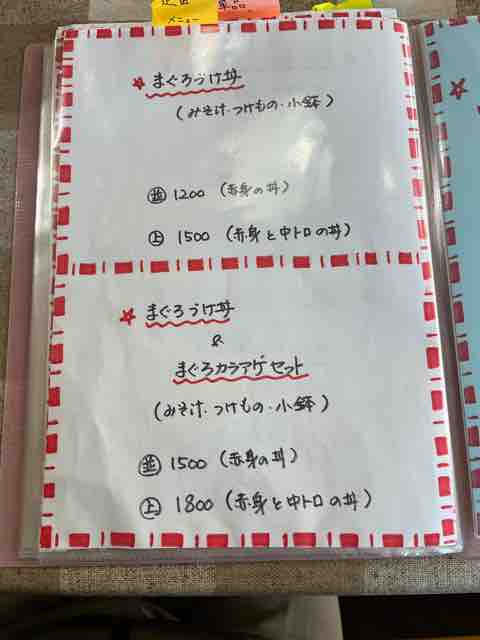 メニュー
★ まぐろづけ丼
(みそ汁・つけもの・小鉢)
並 1200 (赤身の丼)
上 1500 (赤身と中トロの丼)
★ まぐろづけ丼
&
まぐろカラアゲセット
(みそ汁・つけもの・小鉢)
並 1500 (赤身の丼)
上 1800 (赤身と中トロの丼)